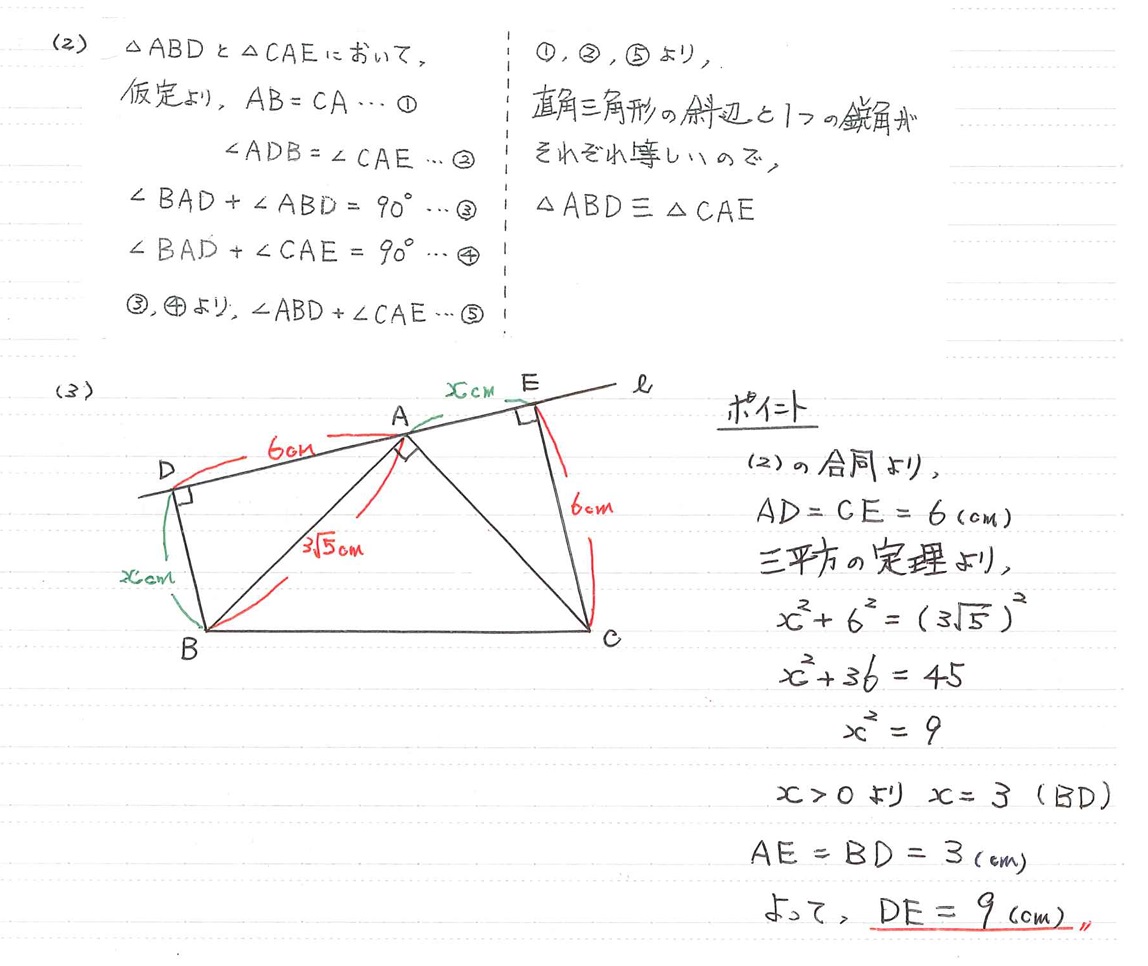 (2) △ABDと△CAEにおいて,
仮定より, AB=CA…①
∠ADB=∠CAE…②
∠BAD+∠ABD=90°…③
∠BAD+∠CAE=90°…④
③,④より, ∠ABD+∠CAE…⑤
①,②,⑤より,
直角三角形の斜辺と1つの鋭角が
それぞれ等しいので,
△ABD≡△CAE
(3)
xcm
E
l
A
6cm
D
6cm
3√5cm
xcm
B
C
ポイント
(2)の合同より,
AD=CE=6(cm)
三平方の定理より,
x²+6²=(3√5)²
x²+36=45
x²=9
x>0より x=3 (BD)
AE=BD=3(cm)
よって, DE=9(cm)〃